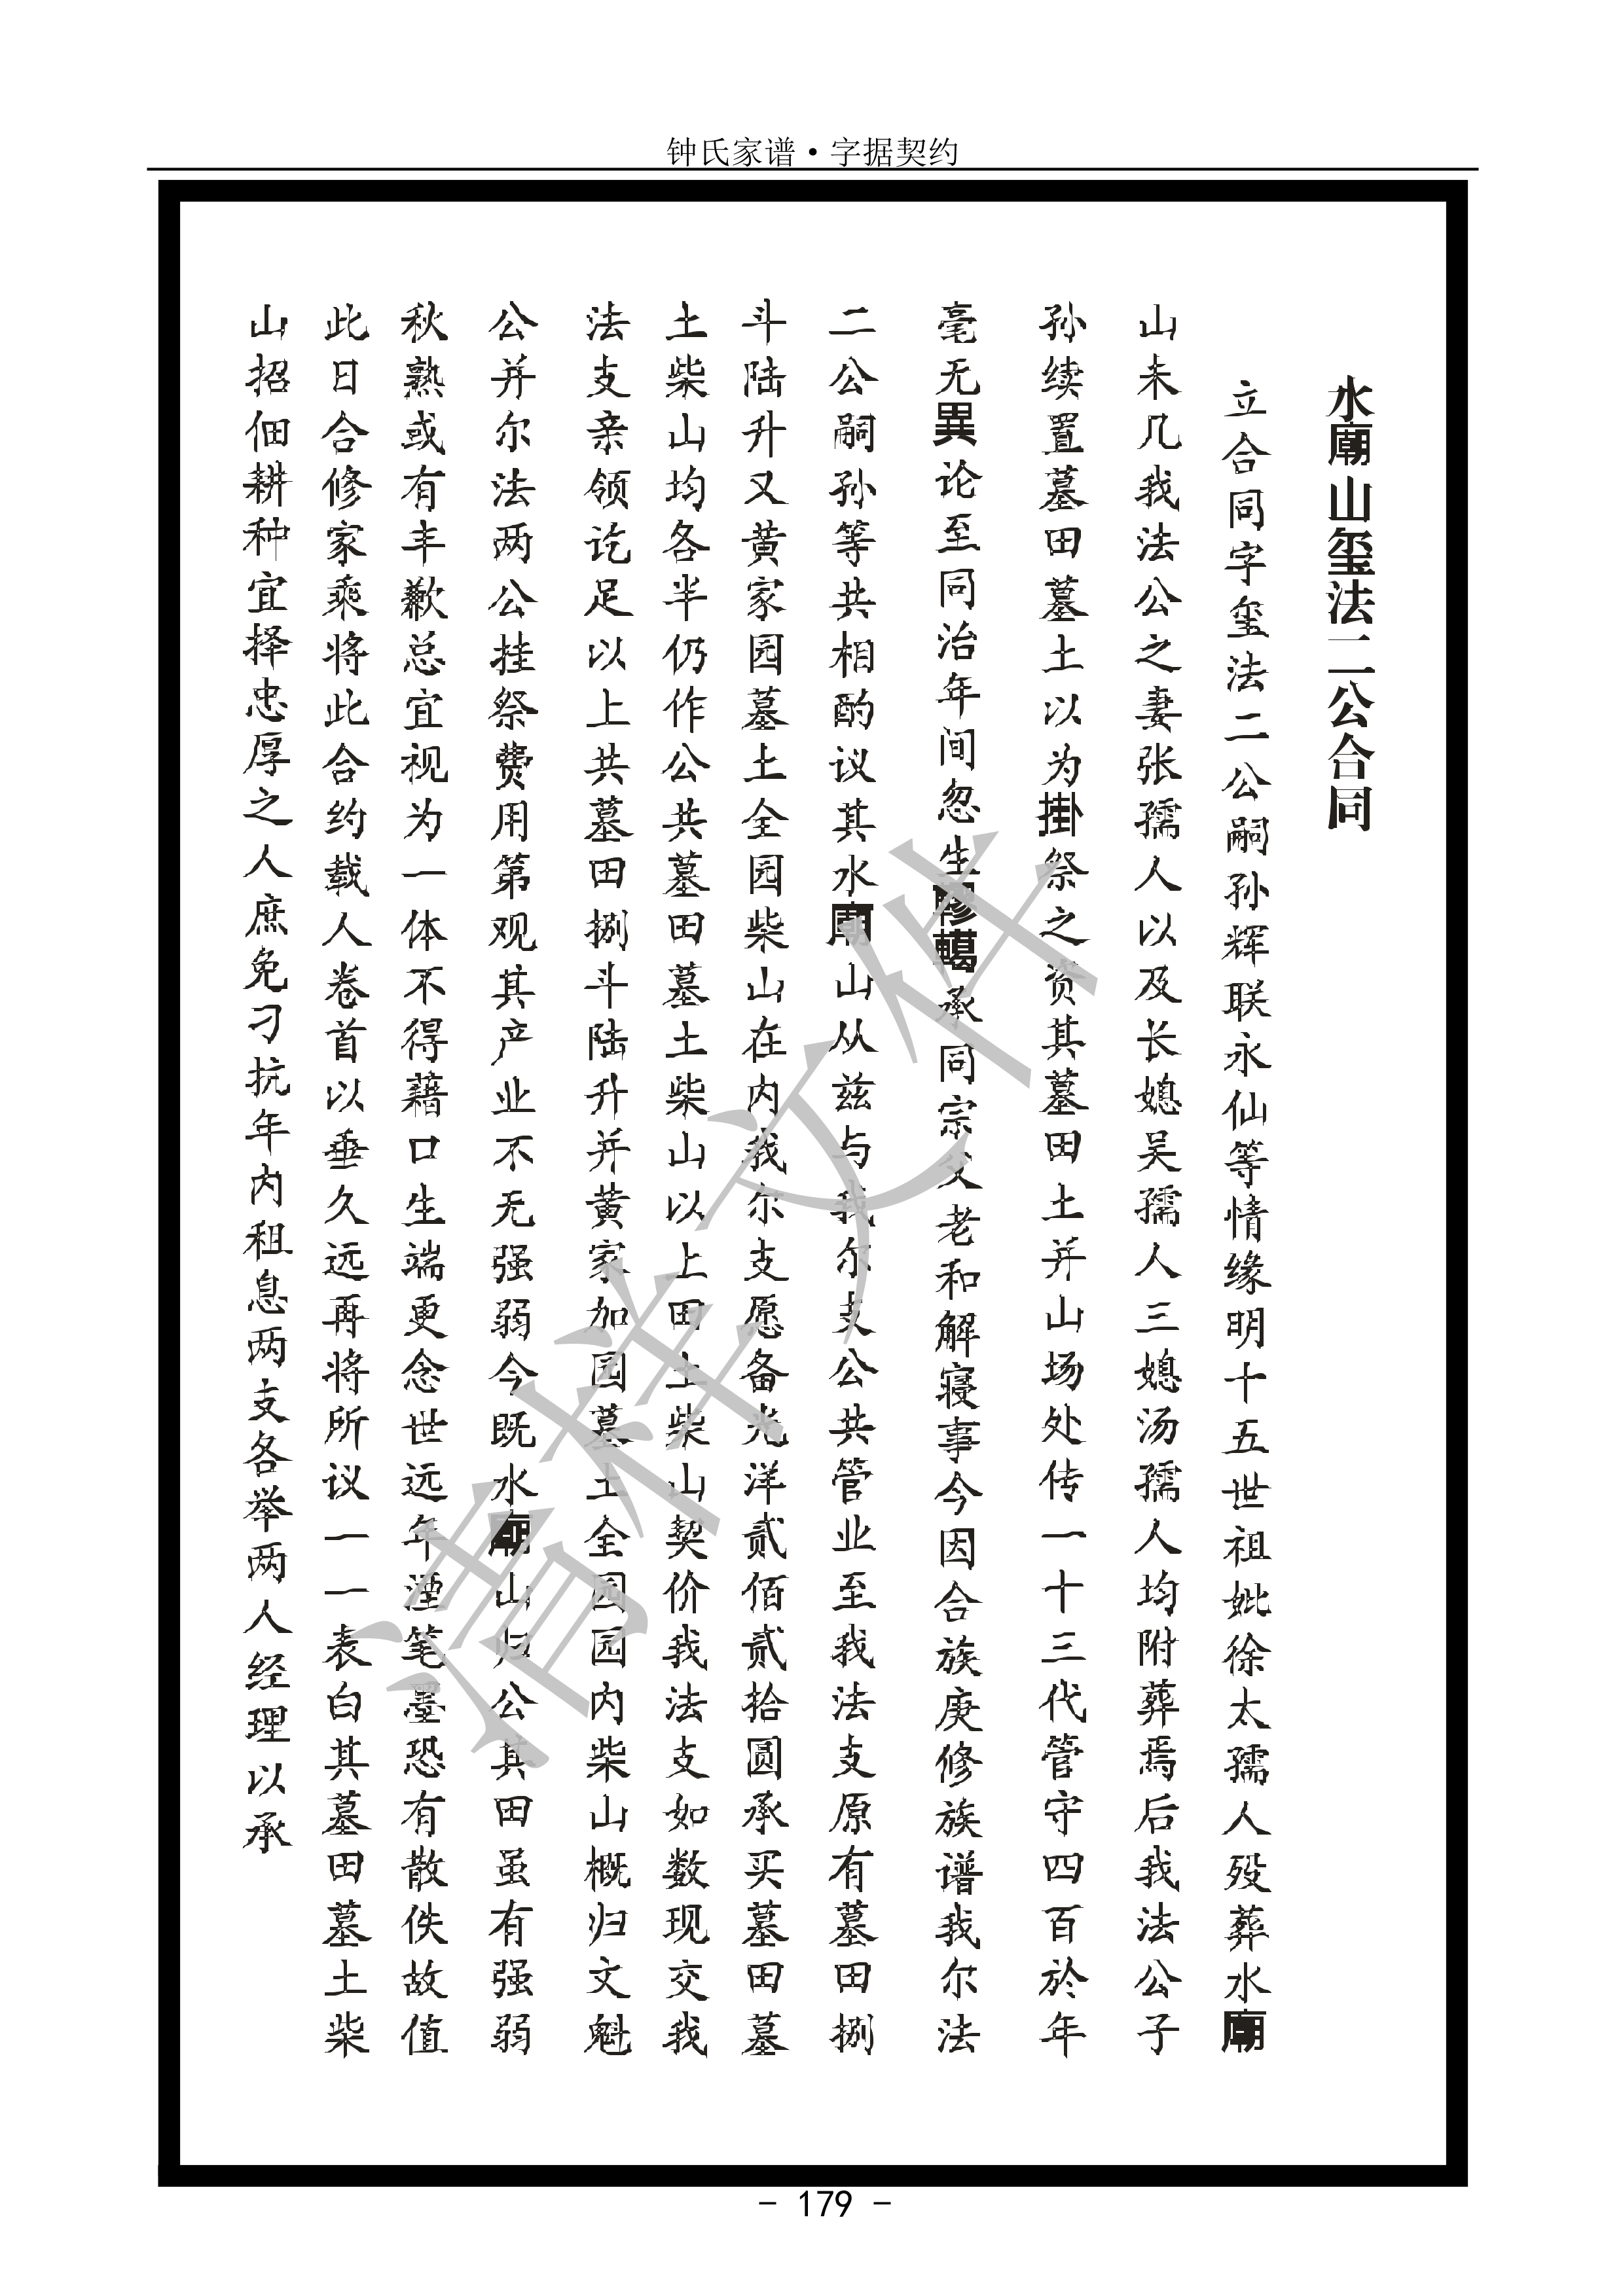 钟氏家谱·字据契约
水廟山玺法二公合同
立合同字玺法二公嗣孙辉联永仙等情缘明十五世祖妣徐太孺人殁葬水廟
山未几我法公之妻张孺人以及长媳吴孺人三媳汤孺人均附葬焉后我法公子
孙续置墓田墓土以为掛祭之资其墓田土并山场处传一十三代管守四百於年
毫无異论至同治年间忽生轇轕承同宗父老和解寝事今因合族庚修族谱我尔法
二公嗣孙等共相酌议其水廟山从兹与我尔支公共管业至我法支原有墓田捌
斗陆升又黄家园墓土全园柴山在内我尔支愿备光洋贰佰贰拾圆承买墓田墓
土柴山均各半仍作公共墓田墓土柴山以上田土柴山契价我法支如数现交我
法支亲领讫足以上共墓田捌斗陆升并黄家加园墓土全园园内柴山概归文魁
公并尔法两公挂祭费用第观其产业不无强弱今既水廟山归公其田虽有强弱
秋熟或有丰歉总宜视为一体不得藉口生端更念世远年湮笔墨恐有散佚故值
此日合修家乘将此合约载人卷首以垂久远再将所议一一表白其墓田墓土柴
山招佃耕种宜择忠厚之人庶免刁抗年内租息两支各举两人经理以承
清样文件
- 179 -